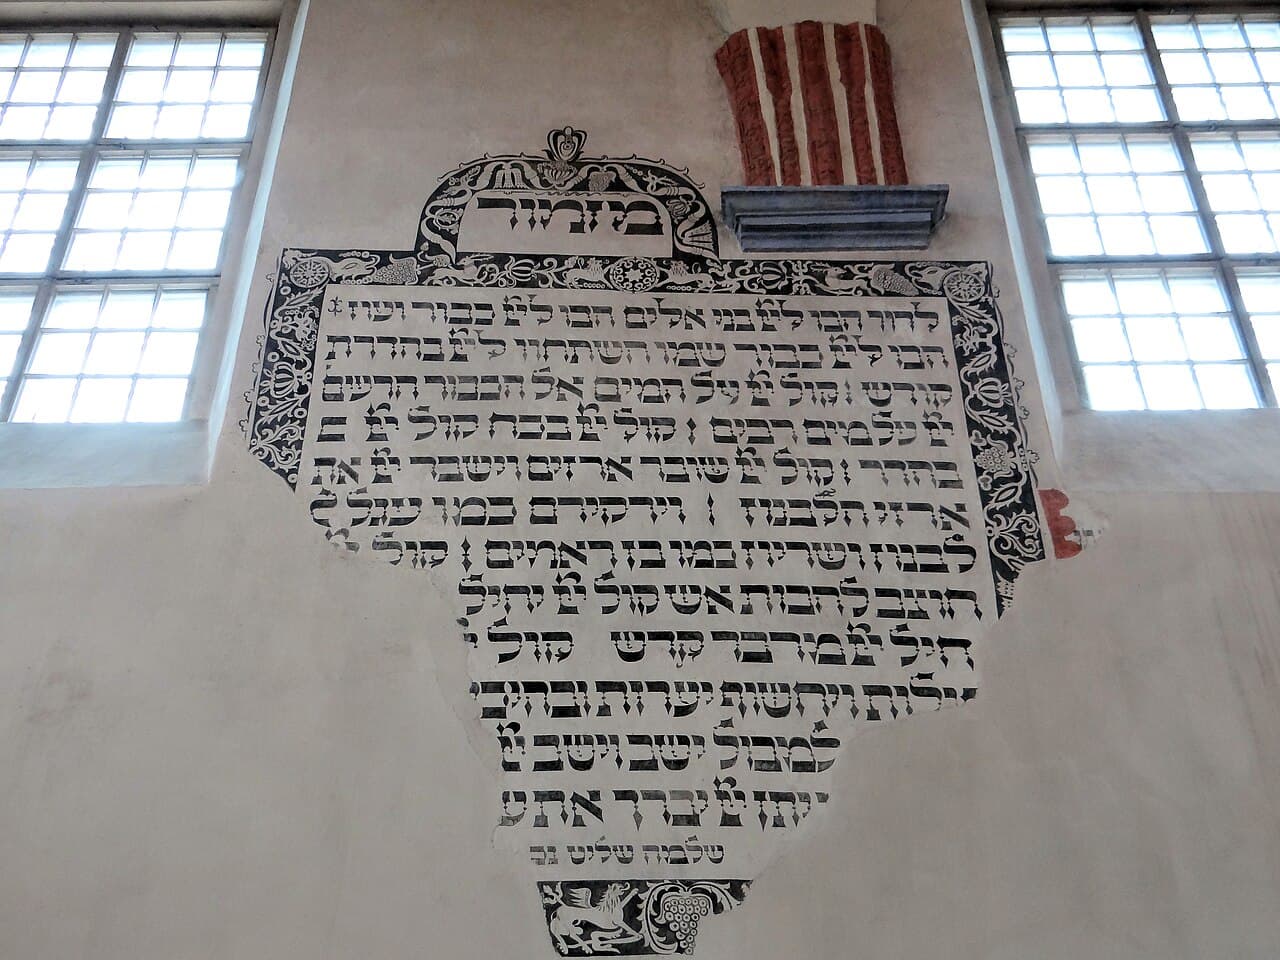 מזמור
לדוד הבו לי״י בני אלים הבו לי״י כבוד ועוז:
הבו לי״י כבוד שמו השתחוו לי״י בהדרת
קודש : קול י״י על המים אל הכבוד הרעם
י״י על מים רבים : קול י״י בכח קול י״י ב
בהדר : קול י״י שובר ארזים וישבר י״י את
ארזי הלבנון : וירקידם כמו עגל ל
לבנון ושריון כמו בן ראמים : קול י״י
חוצב להבות אש קול י״י יחיל
חיל י״י מדבר קדש קול י
ילות ויחשוף יערות ובהיכ
למבול ישב וישב י״י
יתן י״י יברך את ע
שלמה